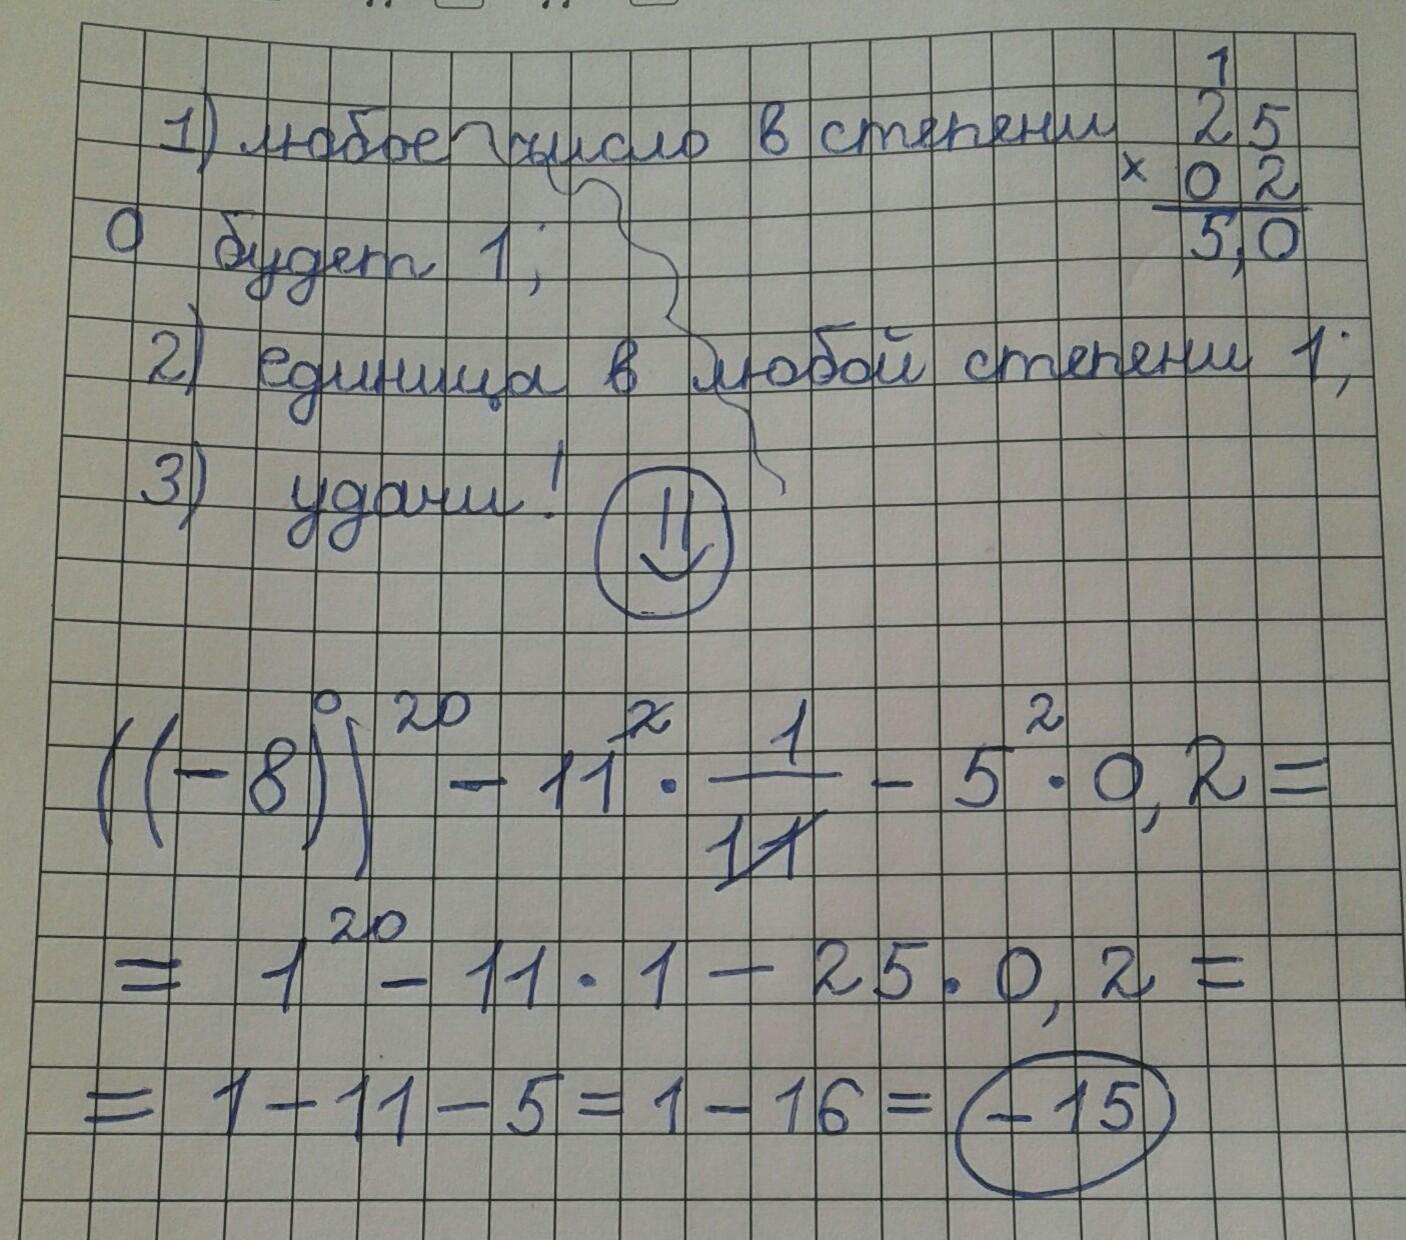 1) любое число в степени
0 будет 1;
2) единица в любой степени 1;
3) удачи!
1
25
× 02
5,0
((-8)⁰)²⁰ - 11² · 1/11 - 5² · 0,2 =
= 1²⁰ - 11 · 1 - 25 · 0,2 =
= 1 - 11 - 5 = 1 - 16 = -15